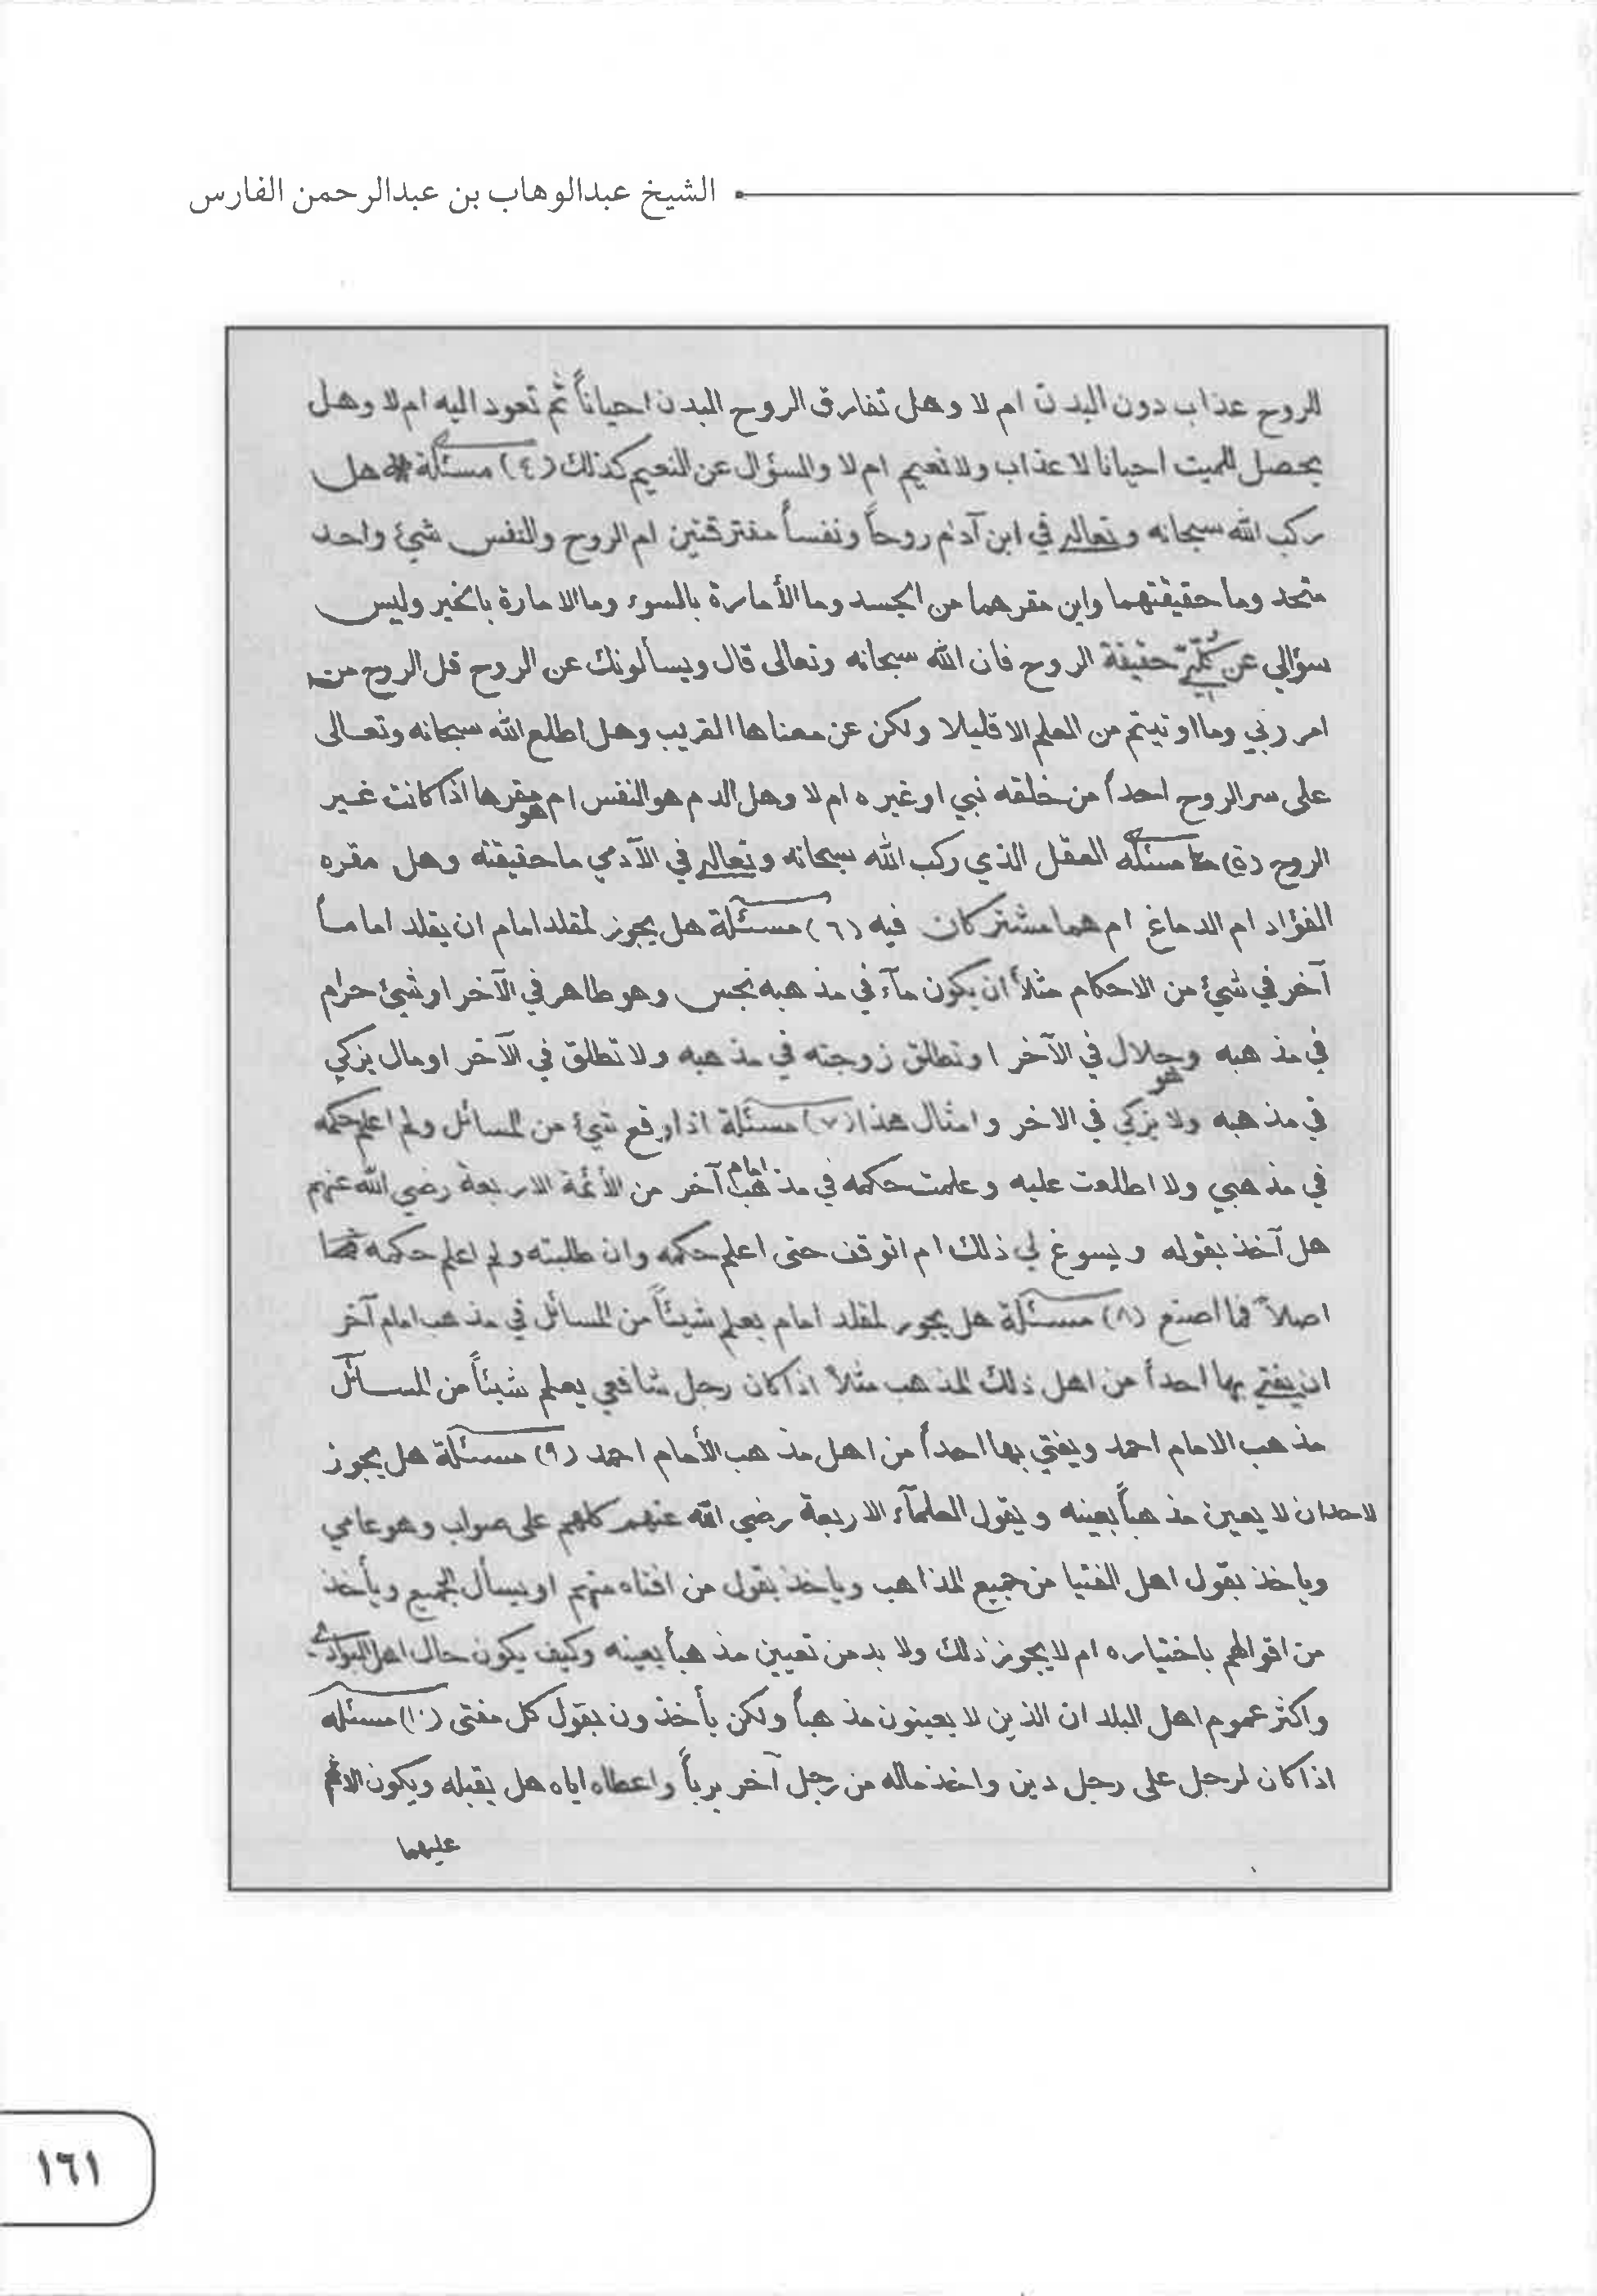 الشيخ عبدالوهاب بن عبدالرحمن الفارس
للروح عذاب دون البدن ام لا وهل تفارق الروح البدن احياناً ثم تعود اليه ام لا وهل
يحصل للميت احيانا لا عذاب ولا نعيم ام لا والسؤال عن النعيم كذلك (٤) مسئلة هل
ركب الله سبحانه وتعالى في ابن آدم روحاً ونفساً مفترقتين ام الروح والنفس شيئ واحد
متحد وما حقيقتهما واين مقرهما من الجسد وما الأمارة بالسوء وما الامارة بالخير وليس
سؤالي عن حقيقة الروح فان الله سبحانه وتعالى قال ويسألونك عن الروح قل الروح من
امر ربي وما اوتيتم من العلم الا قليلا ولكن عن معناها القريب وهل اطلع الله سبحانه وتعالى
على سر الروح احداً من خلقه نبي او غيره ام لا وهل الدم هو النفس ام هو مقرها اذا كانت غير
الروح (٥) مسئله العقل الذي ركب الله سبحانه وتعالى في الآدمي ما حقيقته وهل مقره
الفؤاد ام الدماغ ام هما مشتركان فيه (٦) مسئلة هل يجوز لمقلد امام ان يقلد اماماً
آخر في شيئ من الاحكام مثلاً ان يكون مآء في مذهبه نجس وهو طاهر في الآخر او شيئ حرام
في مذهبه وهو حلال في الآخر او تطلق زوجته في مذهبه ولا تطلق في الآخر او مال يزكي
في مذهبه ولا يزكي في الاخر وامثال هذا (٧) مسئلة اذا وقع شيئ من المسائل ولم اعلم حكمه
في مذهبي ولا اطلعت عليه وعلمت حكمه في مذهب امام آخر من الأئمة الاربعة رضي الله عنهم
هل آخذ بقوله ويسوغ لي ذلك ام اتوقف حتى اعلم حكمه وان طلبته ولم اعلم حكمه
اصلاً فما اصنع (٨) مسئلة هل يجوز لمقلد امام يعلم شيئاً من المسائل في مذهب امام آخر
ان يفتي بها احداً من اهل ذلك المذهب مثلاً اذا كان رجل شافعي يعلم شيئاً من المسائل
مذهب الامام احمد ويفتي بها احداً من اهل مذهب الأمام احمد (٩) مسئلة هل يجوز
لاحد ان لا يعين مذهباً بعينه ويقول العلمآء الاربعة رضي الله عنهم كلهم على صواب وهو عامي
وياخذ بقول اهل الفتيا من جميع المذاهب وياخذ بقول من افتاه منهم او يسأل الجميع ويأخذ
من اقوالهم باختياره ام لا يجوز ذلك ولا بد من تعيين مذهباً بعينه وكيف يكون حال اهل البوادي
واكثر عموم اهل البلدان الذين لا يعينون مذهباً ولكن يأخذون بقول كل مفتى (١٠) مسئله
اذا كان لرجل على رجل دين واخذ ماله من رجل آخر برباً واعطاه اياه هل يقبله ويكون الاثم
عليهما
١٦١